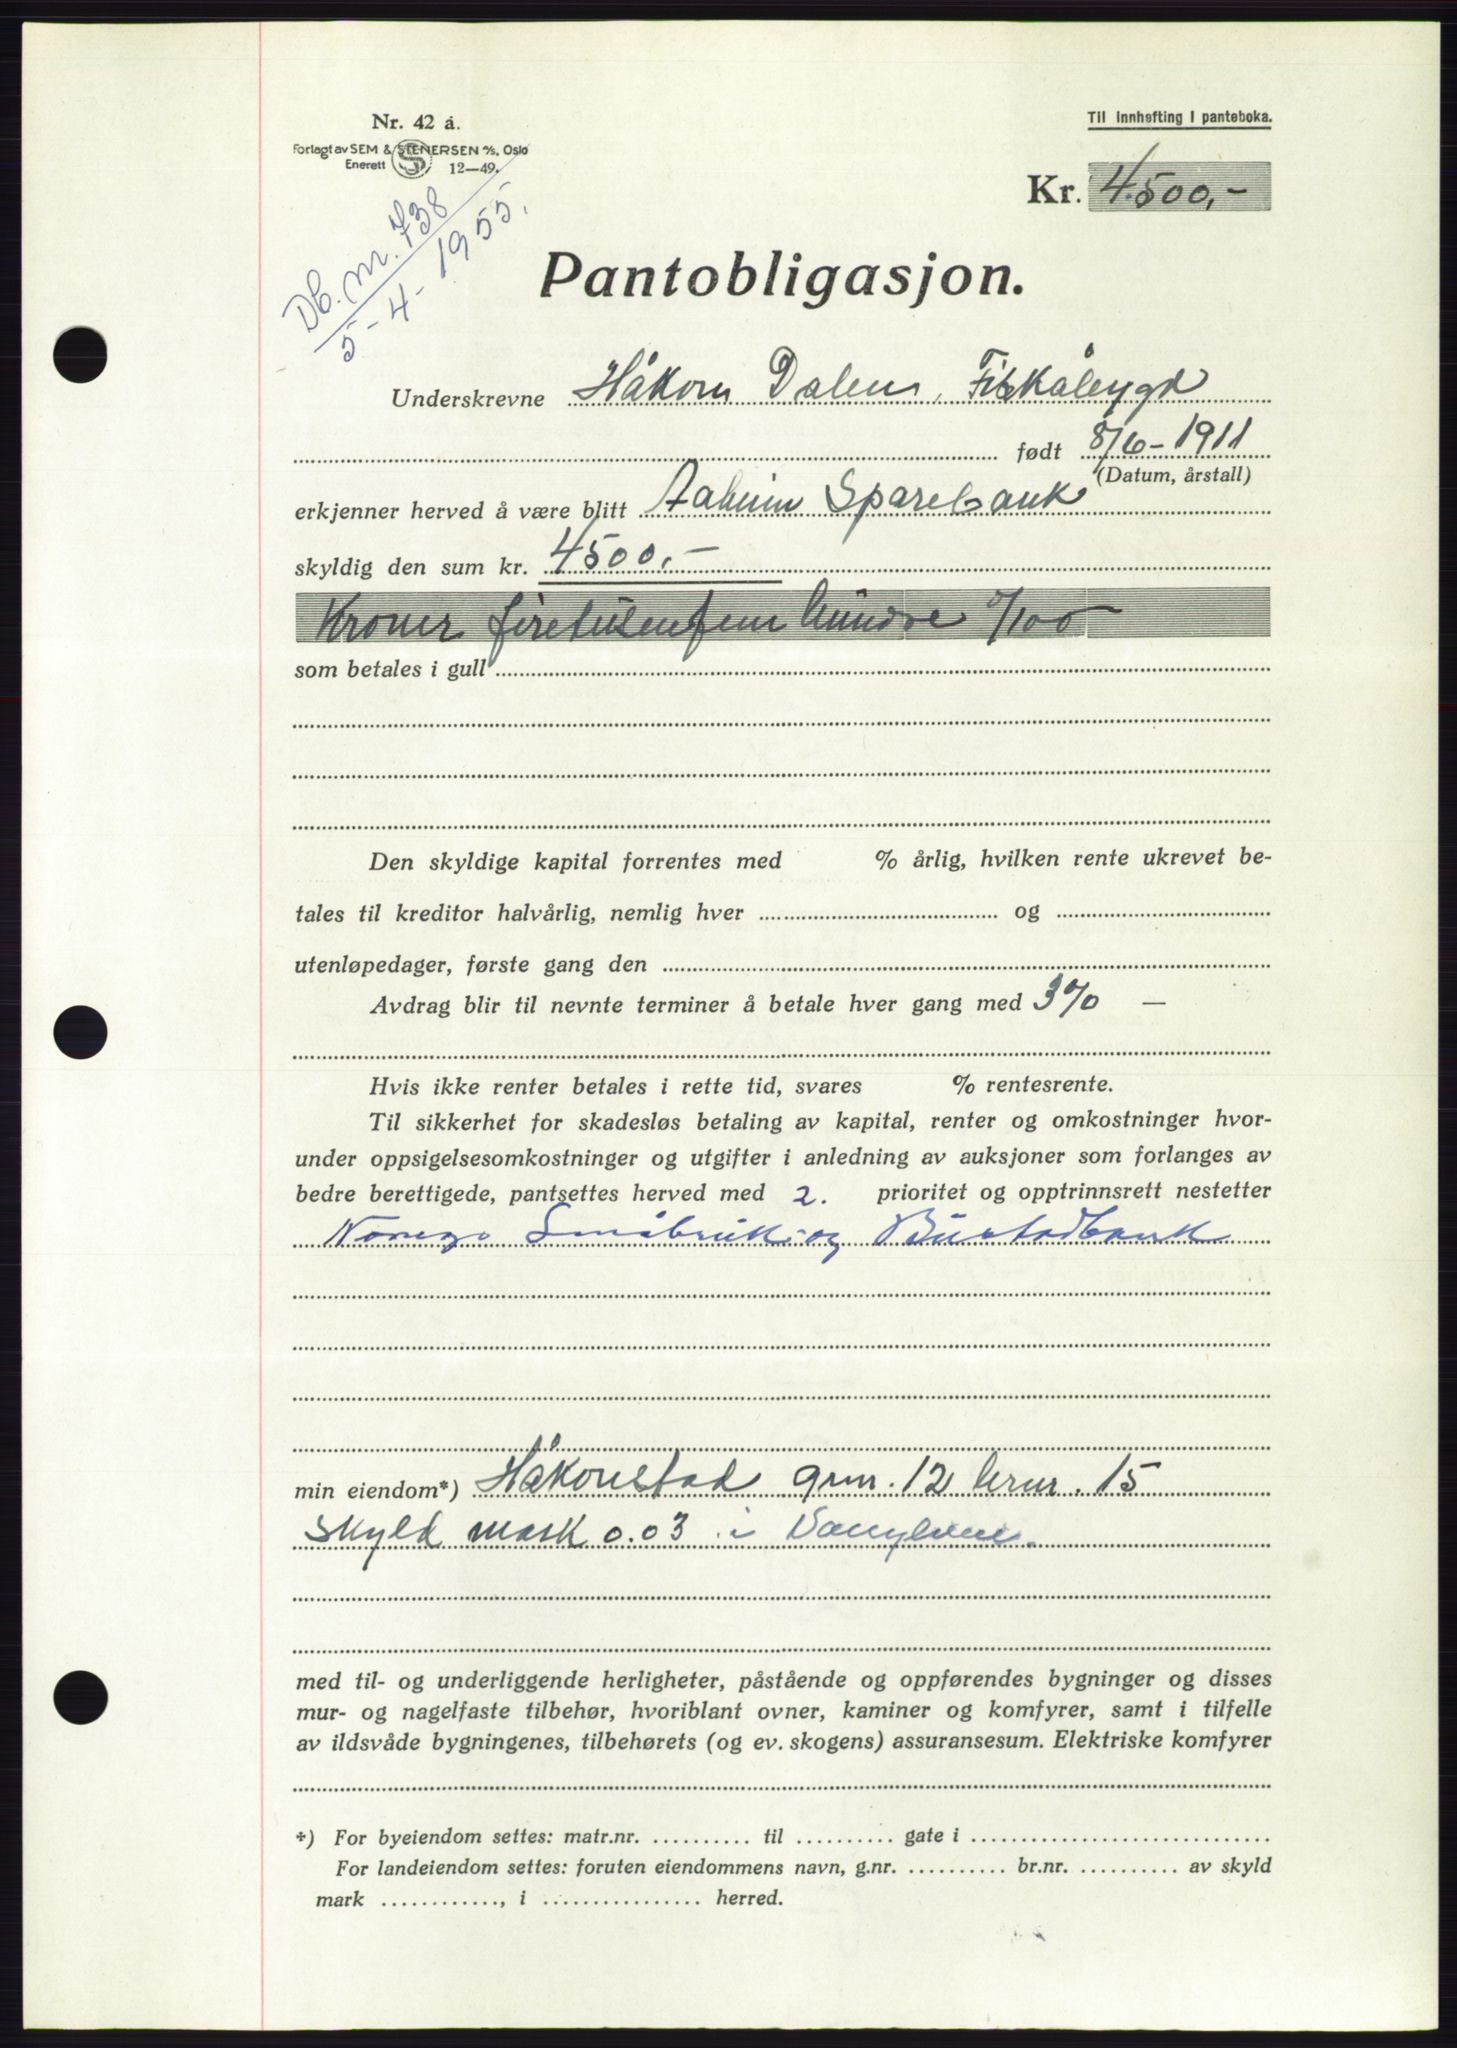 Nr. 42 a.
Forlagt av SEM & STENERSEN A/S, Oslo
Enerett 12—49.
Til innhefting i panteboka.
Kr. 4500,-
Db. nr. 738
5-4-1955.
Pantobligasjon.
Underskrevne Håkon Dalen, Fiskåbygd
født 8/6-1911
(Datum, årstall)
erkjenner herved å være blitt Aaheim Sparebank
skyldig den sum kr. 4500,-
Kroner firetusenfemhundre 0/100
som betales i gull
Den skyldige kapital forrentes med % årlig, hvilken rente ukrevet be-
tales til kreditor halvårlig, nemlig hver og
utenløpedager, første gang den
Avdrag blir til nevnte terminer å betale hver gang med 3% —
Hvis ikke renter betales i rette tid, svares % rentesrente.
Til sikkerhet for skadesløs betaling av kapital, renter og omkostninger hvor-
under oppsigelsesomkostninger og utgifter i anledning av auksjoner som forlanges av
bedre berettigede, pantsettes herved med 2. prioritet og opptrinnsrett nestetter
Noregs Småbruk og Bustadbank
min eiendom*) Håkonstad gnr. 12 brnr. 15
Skyld mark 0.03 i Vanylven.
med til- og underliggende herligheter, påstående og oppførendes bygninger og disses
mur- og nagelfaste tilbehør, hvoriblant ovner, kaminer og komfyrer, samt i tilfelle
av ildsvåde bygningenes, tilbehørets (og ev. skogens) assuransesum. Elektriske komfyrer
*) For byeiendom settes: matr.nr. .......... til .......... gate i ..............................
For landeiendom settes: foruten eiendommens navn, g.nr. .......... br.nr. .......... av skyld
mark ............, i ................ herred.